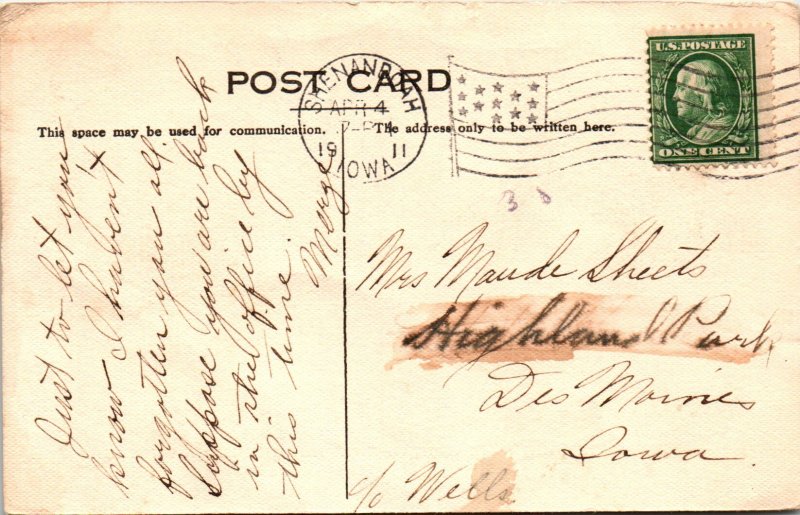 POST CARD
This space may be used for communication.
The address only to be written here.
SHENANDOAH
APR 4
7-PM
19 11
IOWA
U.S. POSTAGE
ONE CENT
Just to let you
know I haben't
forgotten you all.
Suppose you are back
in the office by
this time.
Merge
Mrs Maude Sheets
Highland Park
Des Moines
Iowa.
c/o Wells